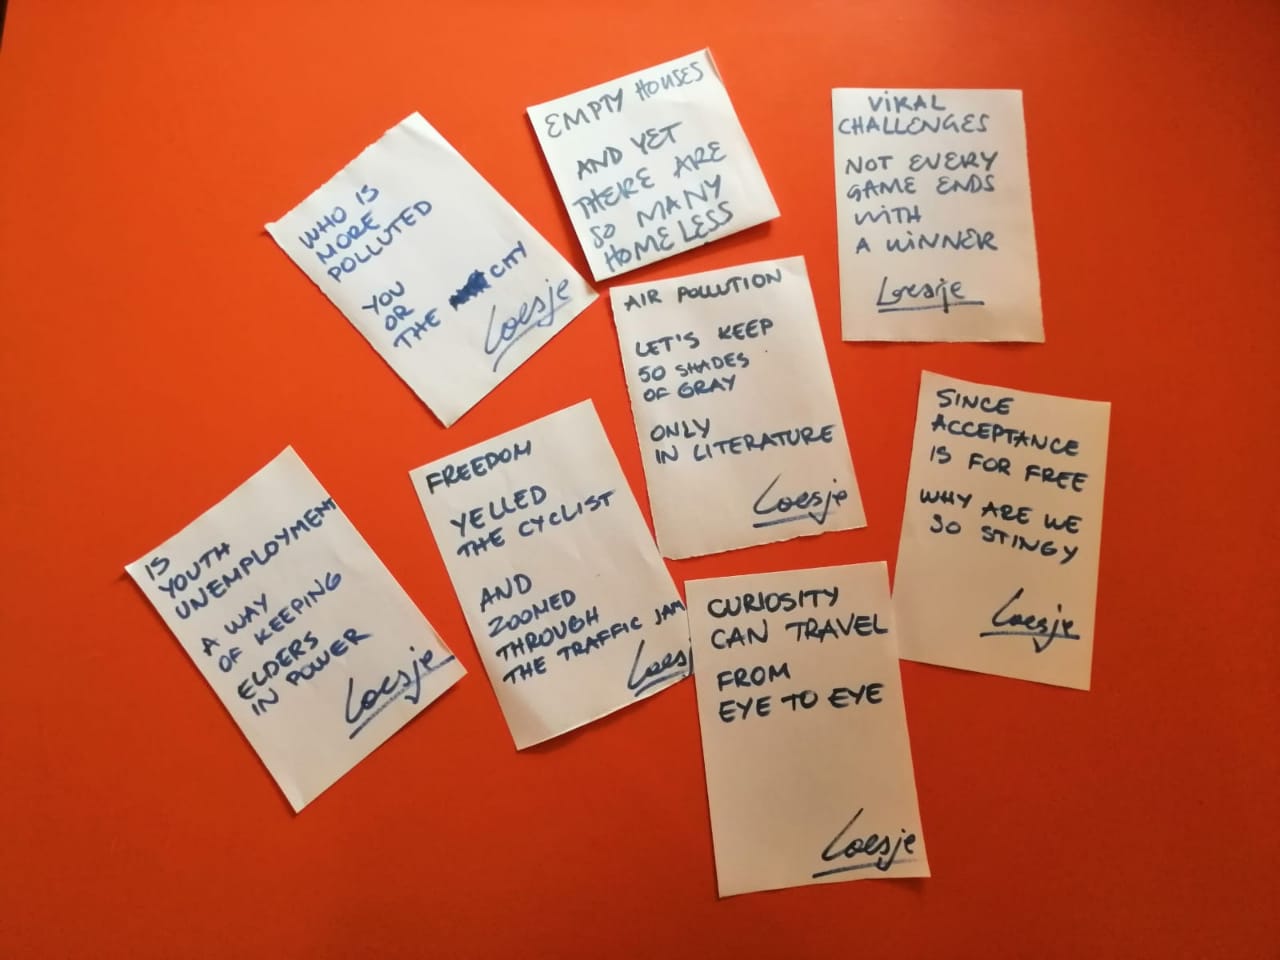 WHO IS
MORE
POLLUTED
YOU
OR
THE CITY
Loesje
EMPTY HOUSES
AND YET
THERE ARE
SO MANY
HOMELESS
VIRAL
CHALLENGES
NOT EVERY
GAME ENDS
WITH
A WINNER
Loesje
AIR POLLUTION
LET'S KEEP
50 SHADES
OF GRAY
ONLY
IN LITERATURE
Loesje
SINCE
ACCEPTANCE
IS FOR FREE
WHY ARE WE
SO STINGY
Loesje
IS
YOUTH
UNEMPLOYMENT
A WAY
OF KEEPING
ELDERS
IN POWER
Loesje
FREEDOM
YELLED
THE CYCLIST
AND
ZOOMED
THROUGH
THE TRAFFIC JAM
Loesj
CURIOSITY
CAN TRAVEL
FROM
EYE TO EYE
Loesje